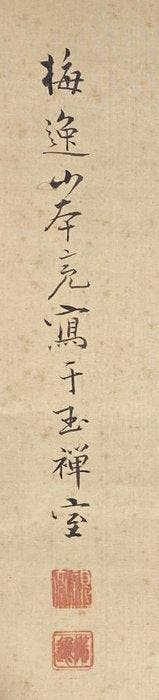 梅逸山本亮寫于玉禅室